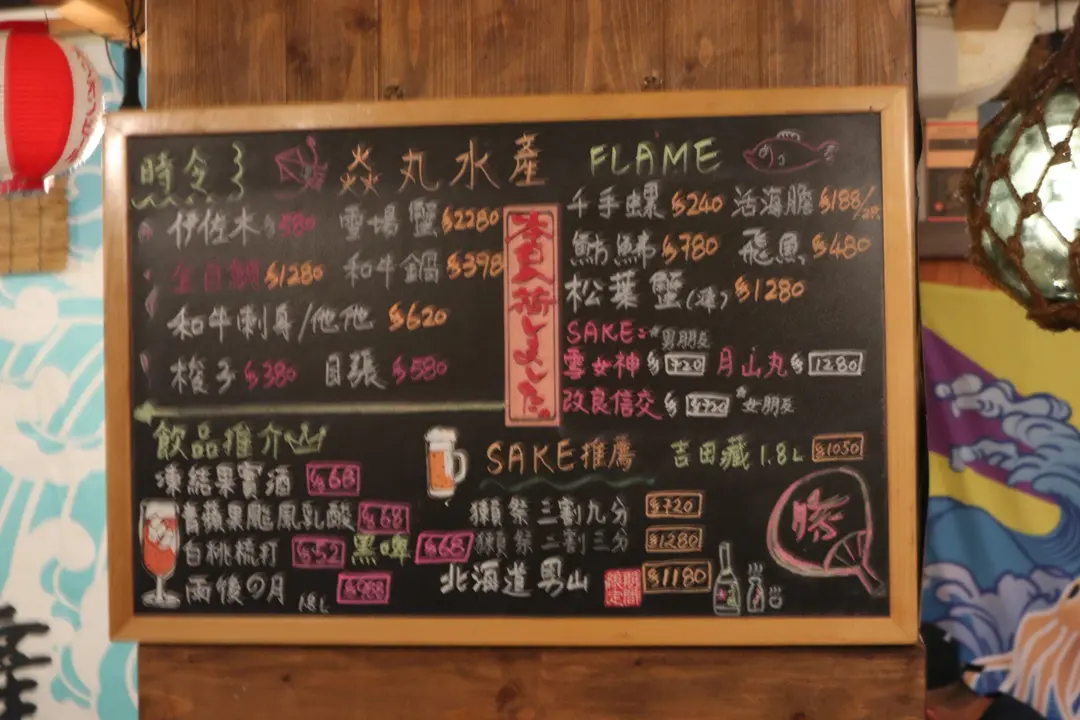 時令
焱丸水產
FLAME
伊佐木 $580
雪場蟹 $2280
金目鯛 $1280
和牛鍋 $398
和牛刺身/他他 $620
梭子 $380
目張 $580
本日入荷しました
千手螺 $240
活海膽 $188/
$780
飛魚 $480
松葉蟹(凍) $1280
SAKE:
*男朋友
雪女神 $720
月山丸 $1280
改良信交 $720
*女朋友
飲品推介
凍結果實酒 $68
青蘋果颱風乳酸 $68
白桃梳打 $52
黑啤 $68
雨後の月 1.8L $988
SAKE推薦
吉田藏 1.8L $1050
獺祭三割九分 $720
獺祭二割三分 $1280
北海道男山
期間限定
$1180
勝